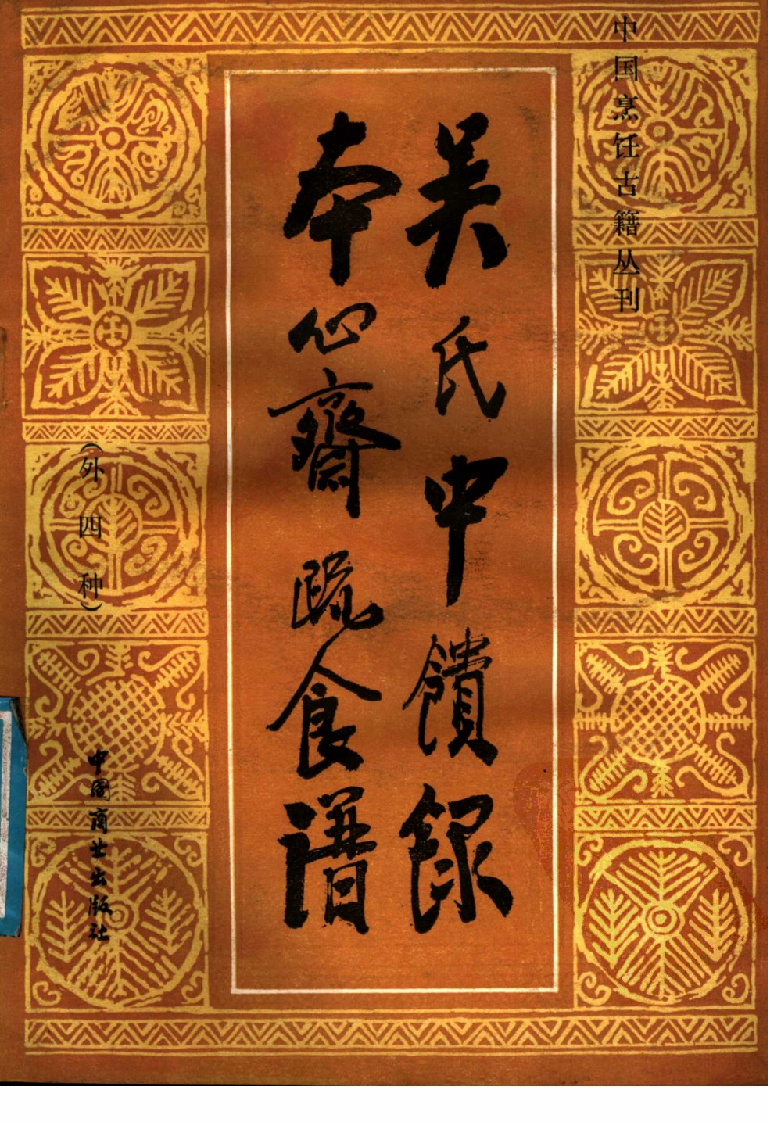 中国烹饪古籍丛刊
吴氏中馈録
本心齋疏食谱
(外四种)
中国商业出版社